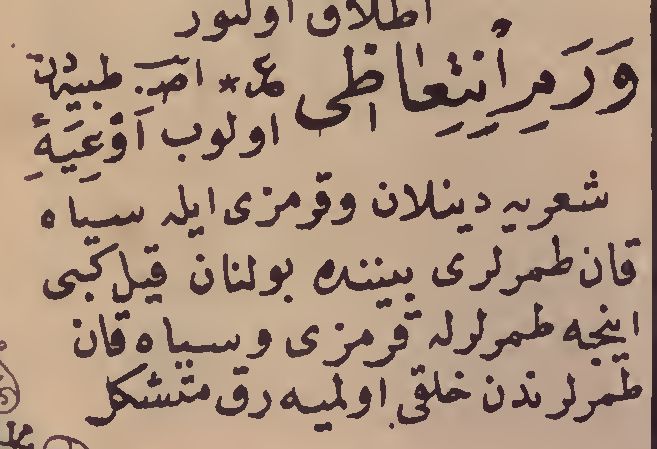 اطلاق اولنور
وَرَمِ اِنْتِعَاظِی عر * اصـ. طبیه‌دن
اولوب اَوْعِیَهٔ
شعریه دینلان و قرمزی ایله سیاه
قان طمرلری بیننده بولنان قیل کبی
اینجه طمرلرله قرمزی وسیاه قان
طمرلرندن خلقی اولمیه رق متشکل